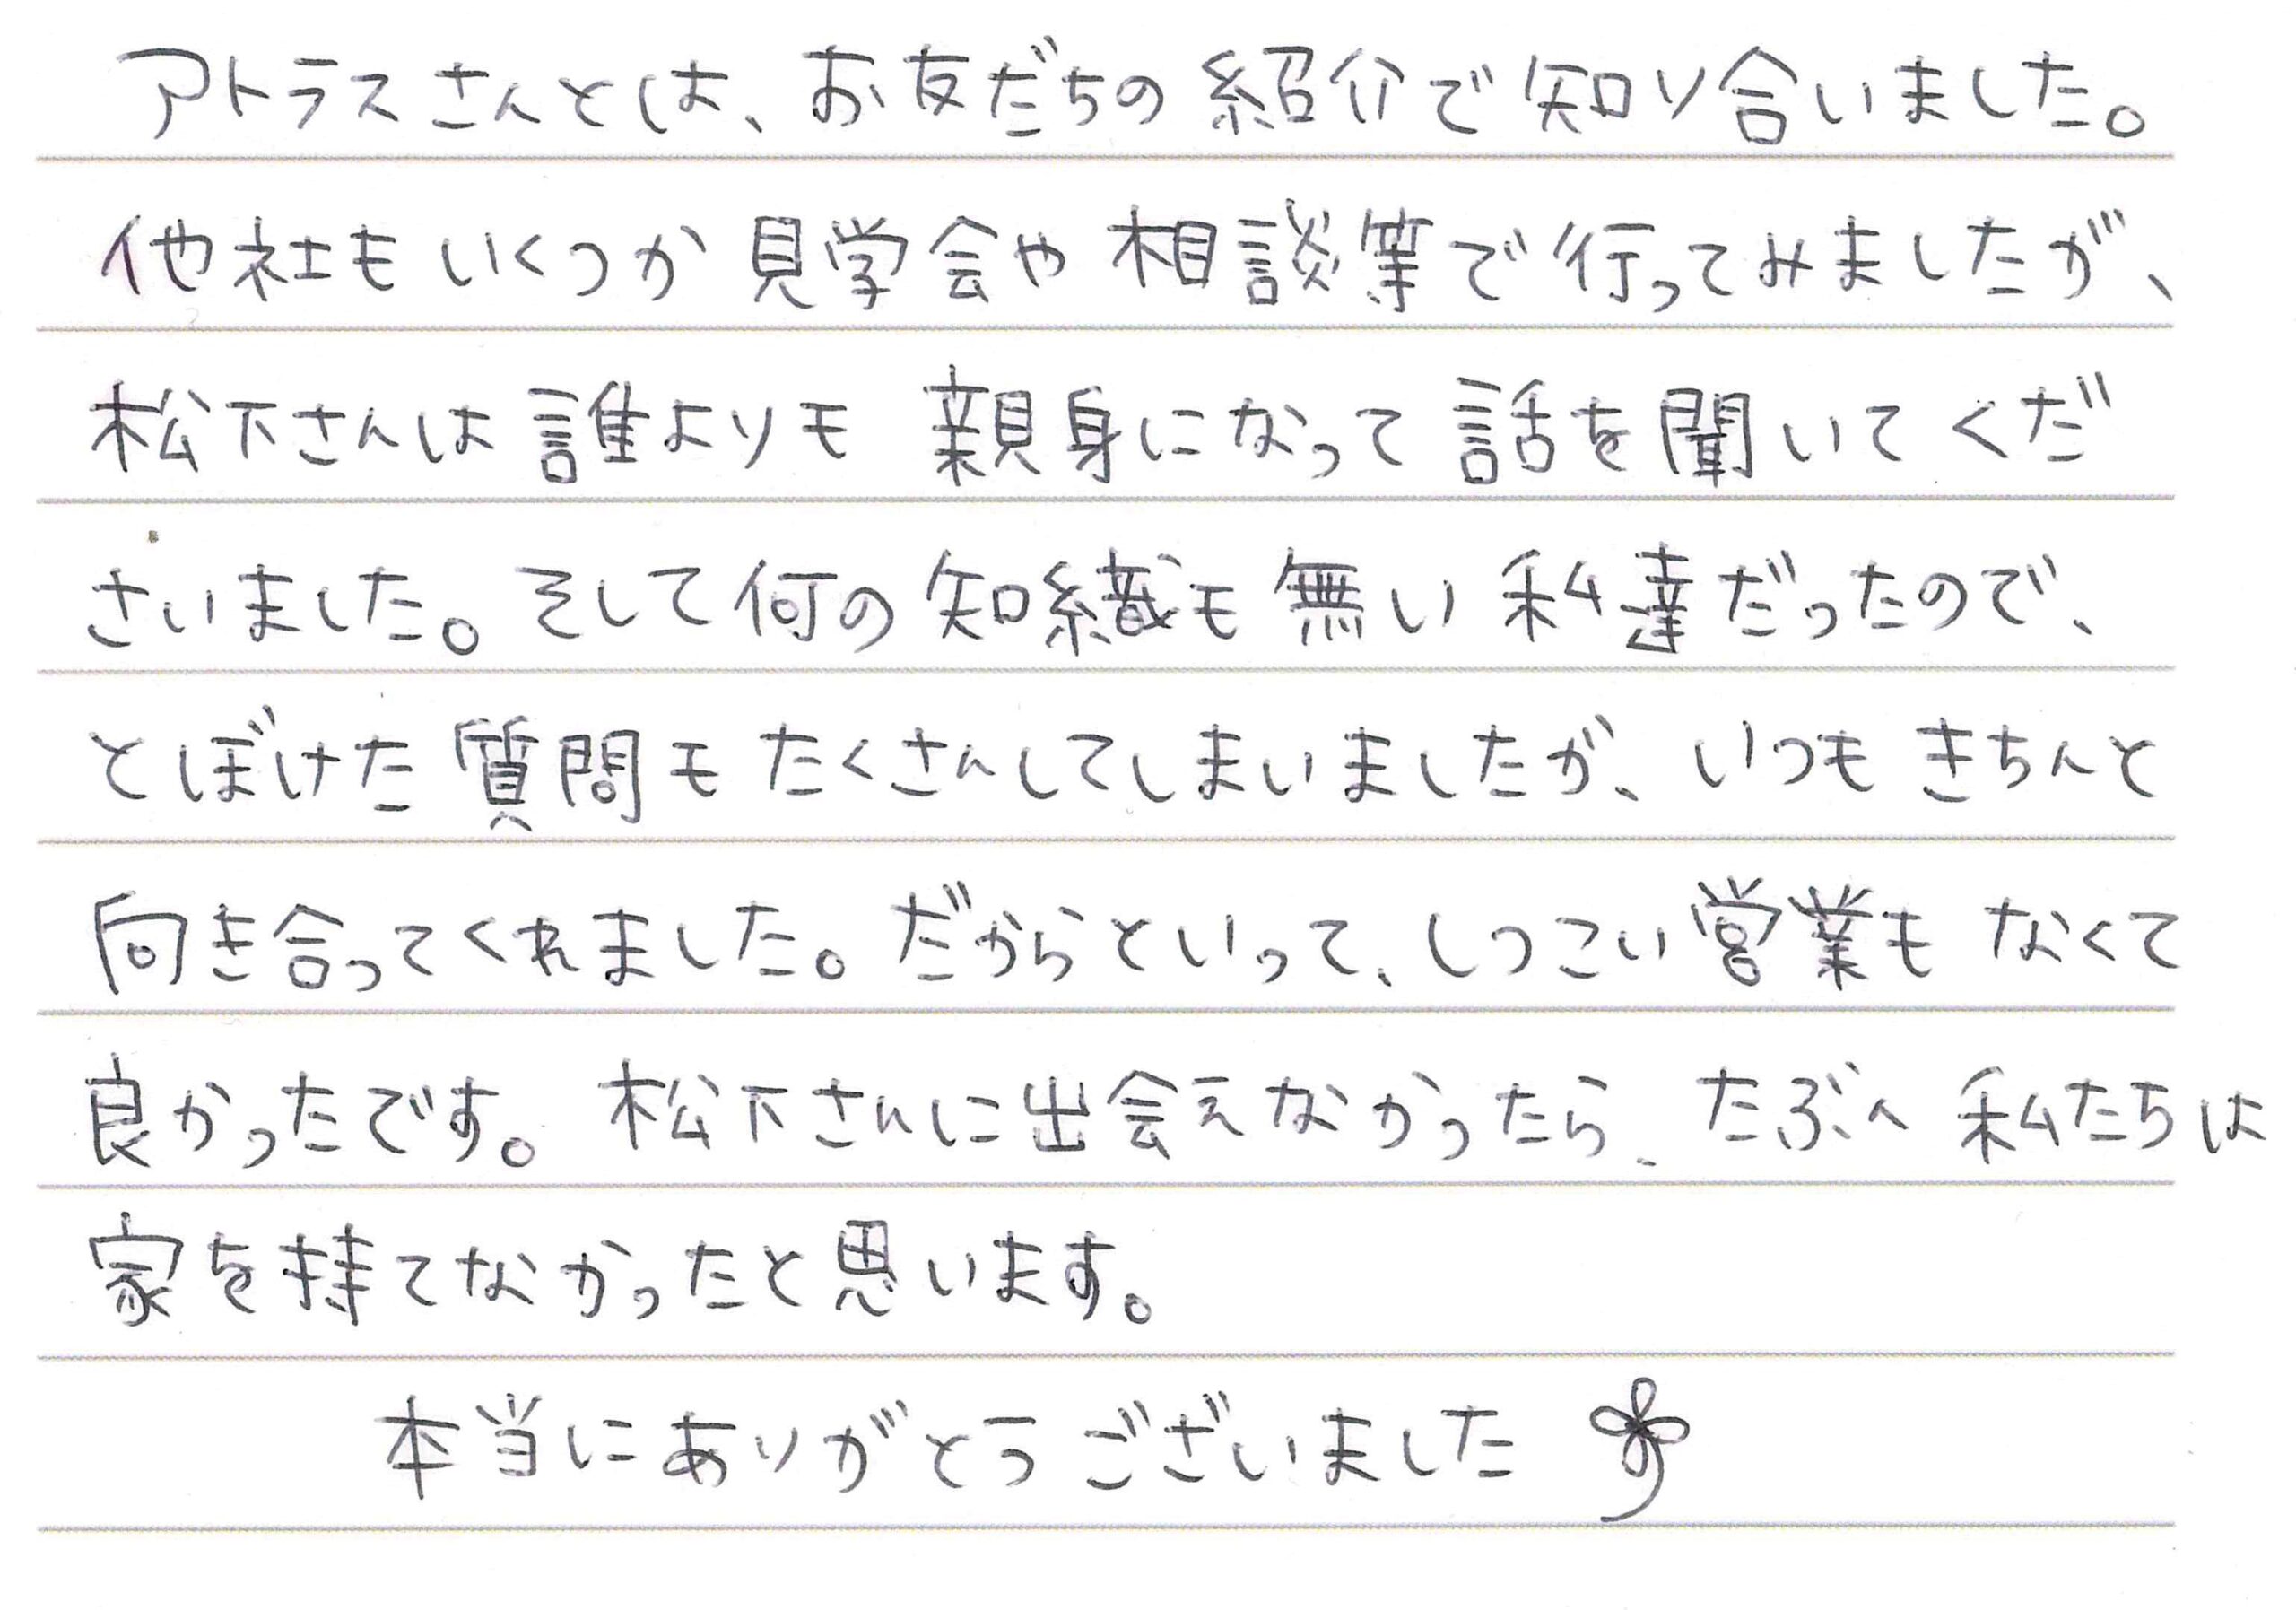 アトラスさんとは、お友だちの紹介で知り合いました。
他社もいくつか見学会や相談等で行ってみましたが、
松下さんは誰よりも親身になって話を聞いてくだ
さいました。そして何の知識も無い私達だったので、
とぼけた質問もたくさんしてしまいましたが、いつもきちんと
向き合ってくれました。だからといって、しつこい営業もなくて
良かったです。松下さんに出会えなかったら、たぶん私たちは
家を持てなかったと思います。
本当にありがとうございました